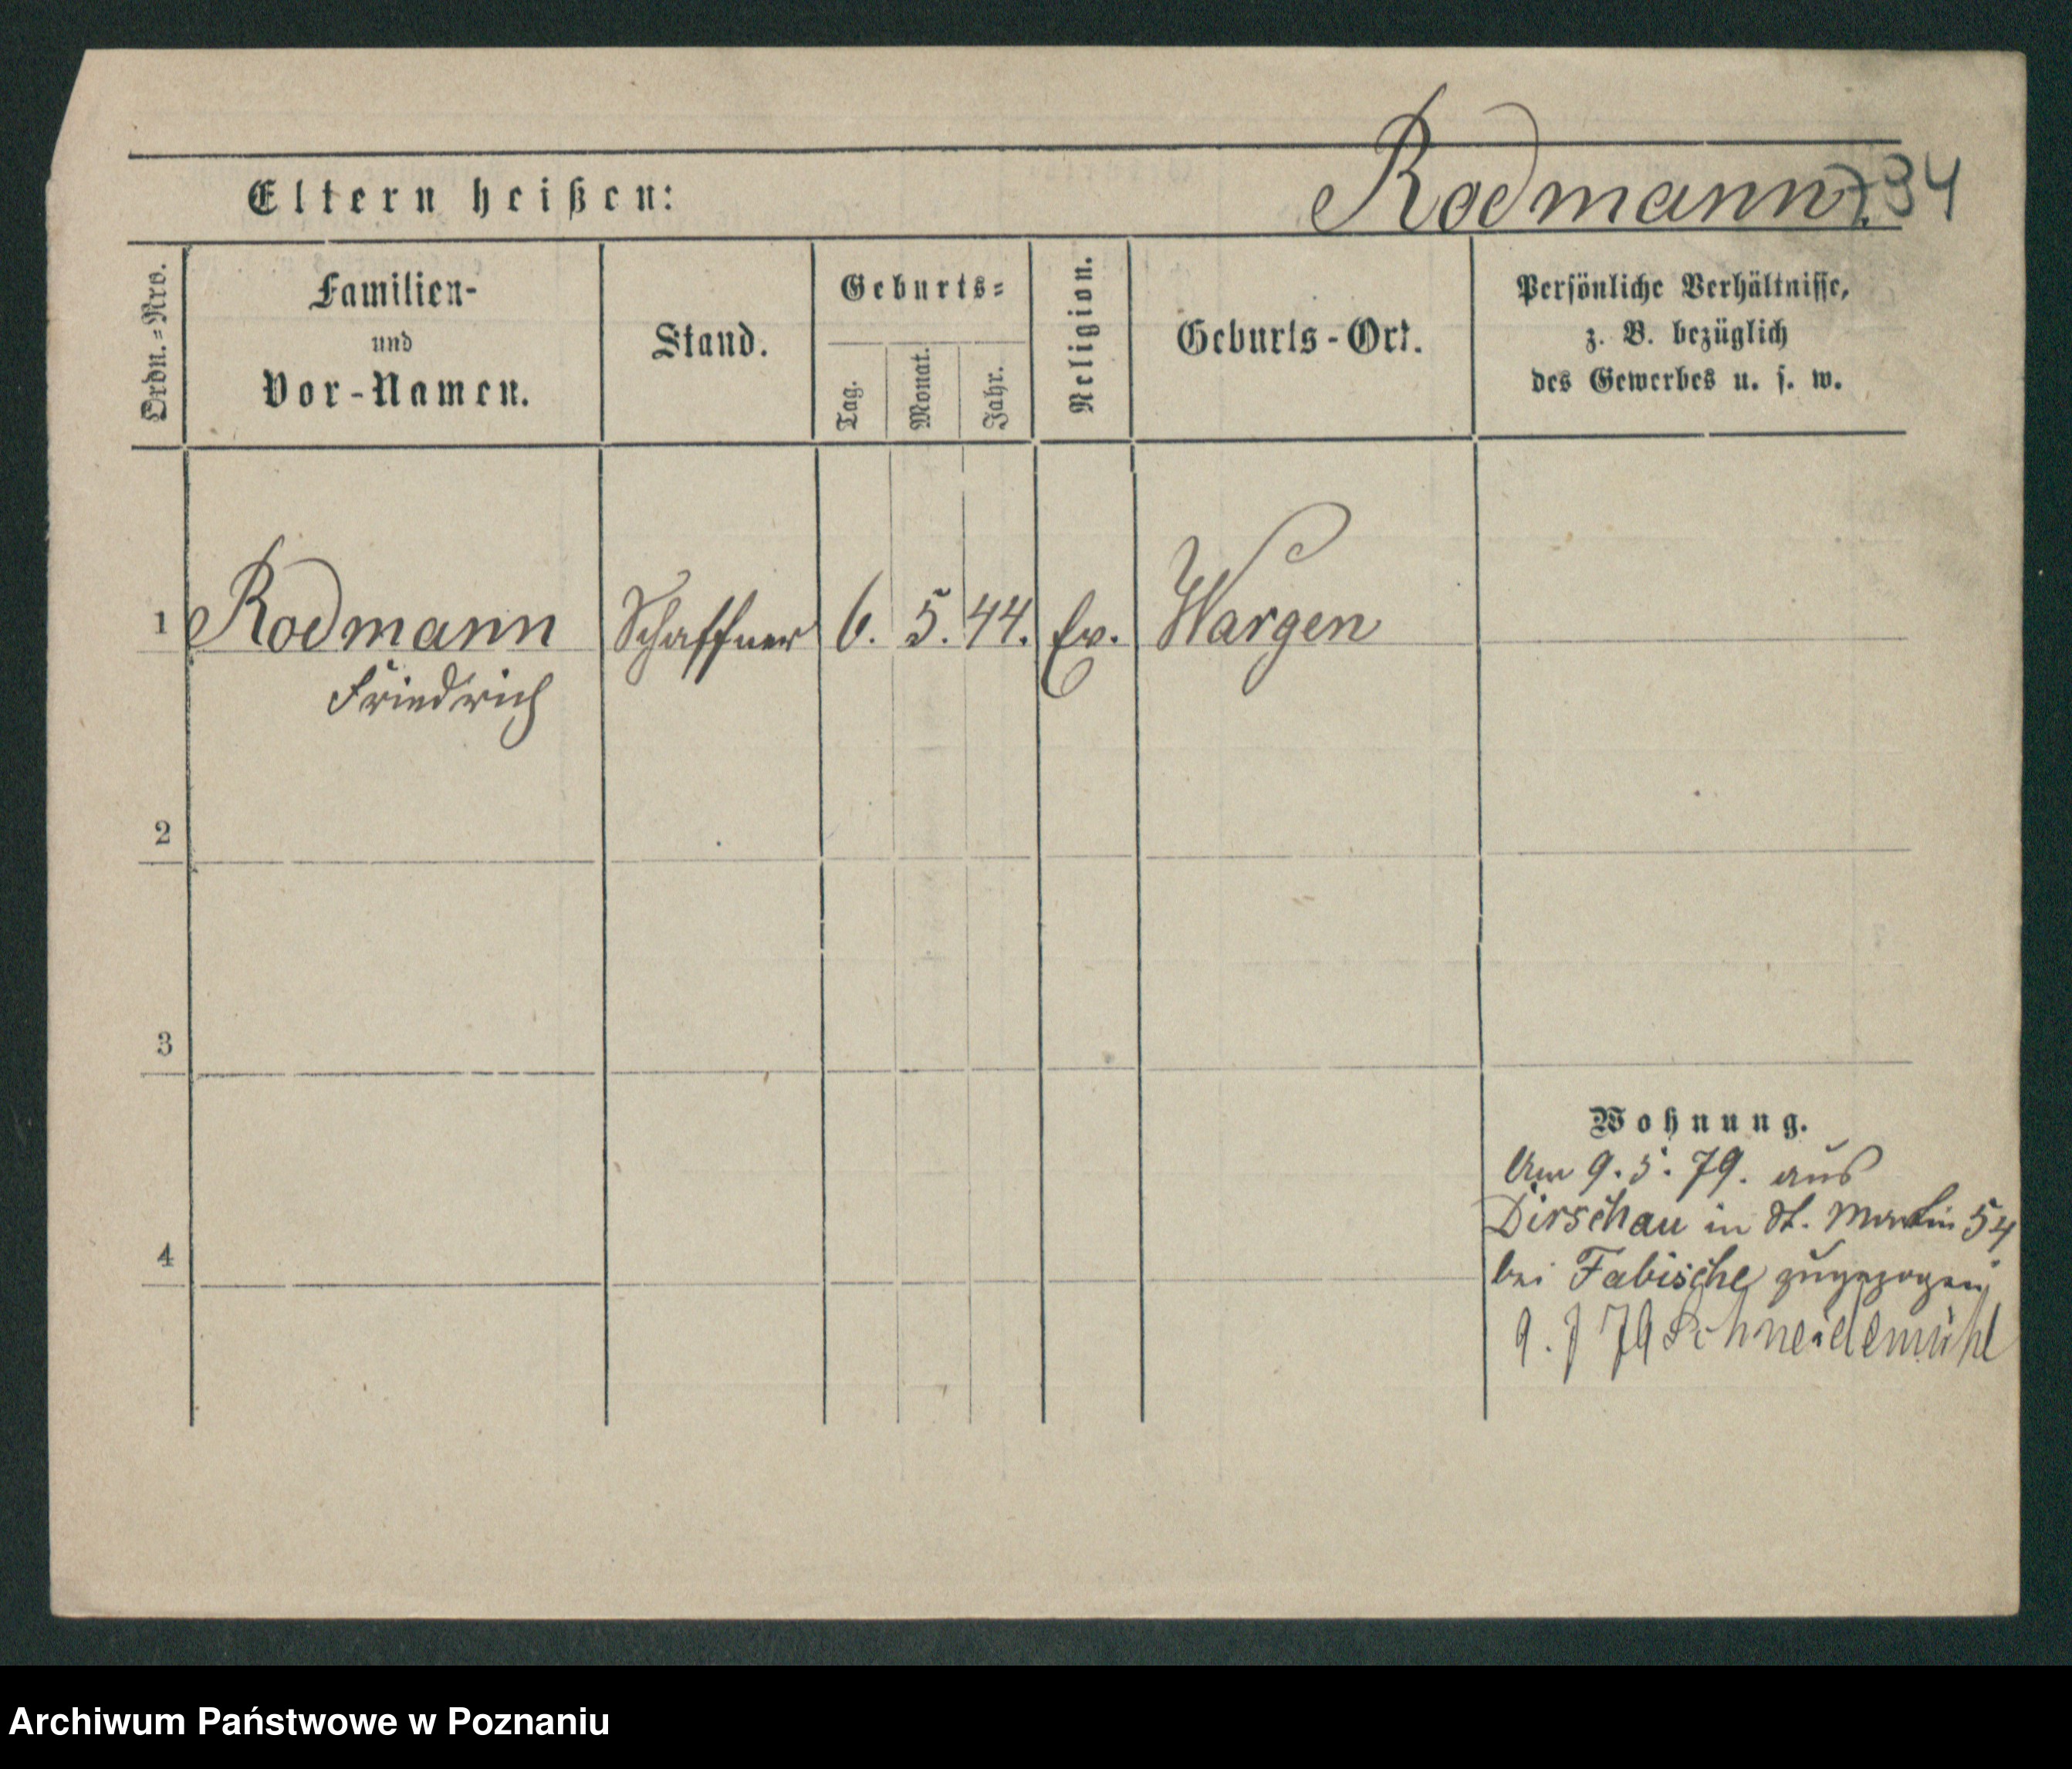 Rodmann. 734
Eltern heißen:
Ordn.=Nro.
Familien-
und
Vor-Namen.
Stand.
Geburts=
Tag.
Monat.
Jahr.
Religion.
Geburts-Ort.
Persönliche Verhältnisse,
z. B. bezüglich
des Gewerbes u. s. w.
1 Rodmann Schaffner 6. 5. 44. Ev. Wargen
Friedrich
2
3
Wohnung.
Am 9. 5. 79. aus
Dirschau in St. Martin 54
4
bei Fabische zugezogen
9. 79 Schneidemühl
Archiwum Państwowe w Poznaniu